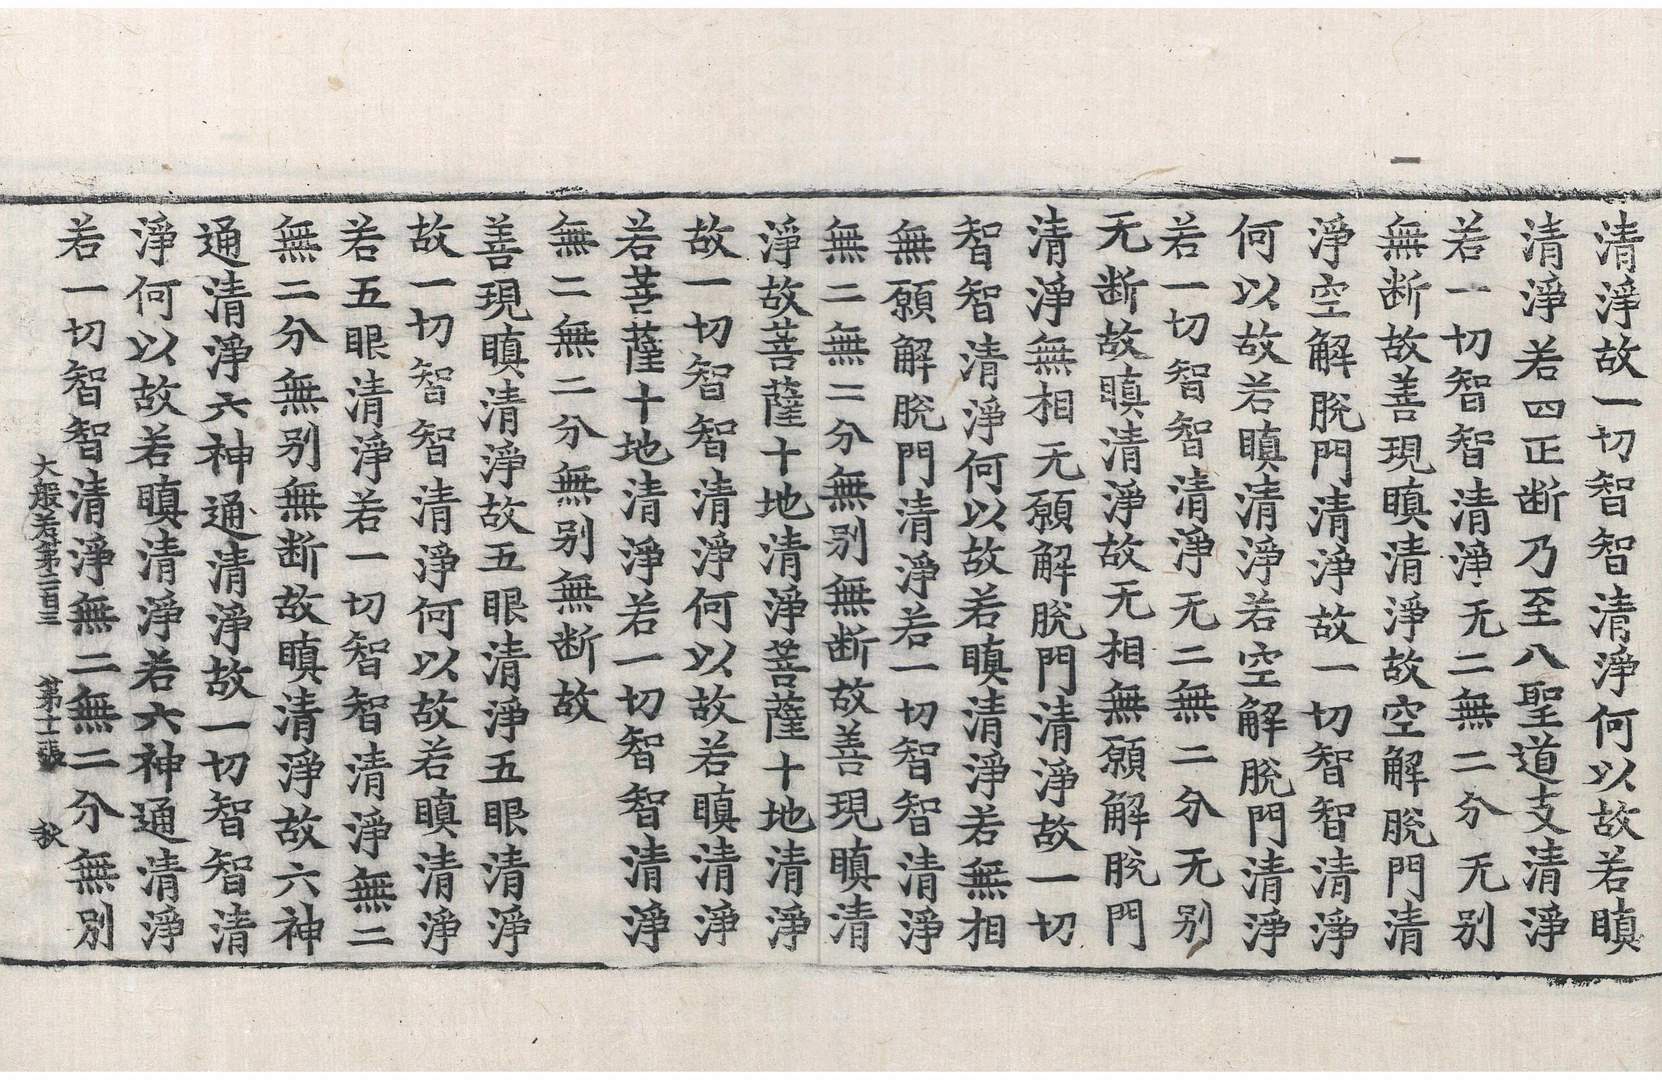 清淨故一切智智清淨何以故若瞋
清淨若四正断乃至八聖道支清淨
若一切智智清淨无二無二分无别
無断故善現瞋清淨故空解脫門清
淨空解脫門清淨故一切智智清淨
何以故若瞋清淨若空解脫門清淨
若一切智智清淨无二無二分无别
无断故瞋清淨故无相無願解脫門
清淨無相无願解脫門清淨故一切
智智清淨何以故若瞋清淨若無相
無願解脫門清淨若一切智智清淨
無二無二分無别無断故善現瞋清
淨故菩薩十地清淨菩薩十地清淨
故一切智智清淨何以故若瞋清淨
若菩薩十地清淨若一切智智清淨
無二無二分無别無断故
善現瞋清淨故五眼清淨五眼清淨
故一切智智清淨何以故若瞋清淨
若五眼清淨若一切智智清淨無二
無二分無别無断故瞋清淨故六神
通清淨六神通清淨故一切智智清
淨何以故若瞋清淨若六神通清淨
若一切智智清淨無二無二分無別
大般若第二百三 第十一張 秋